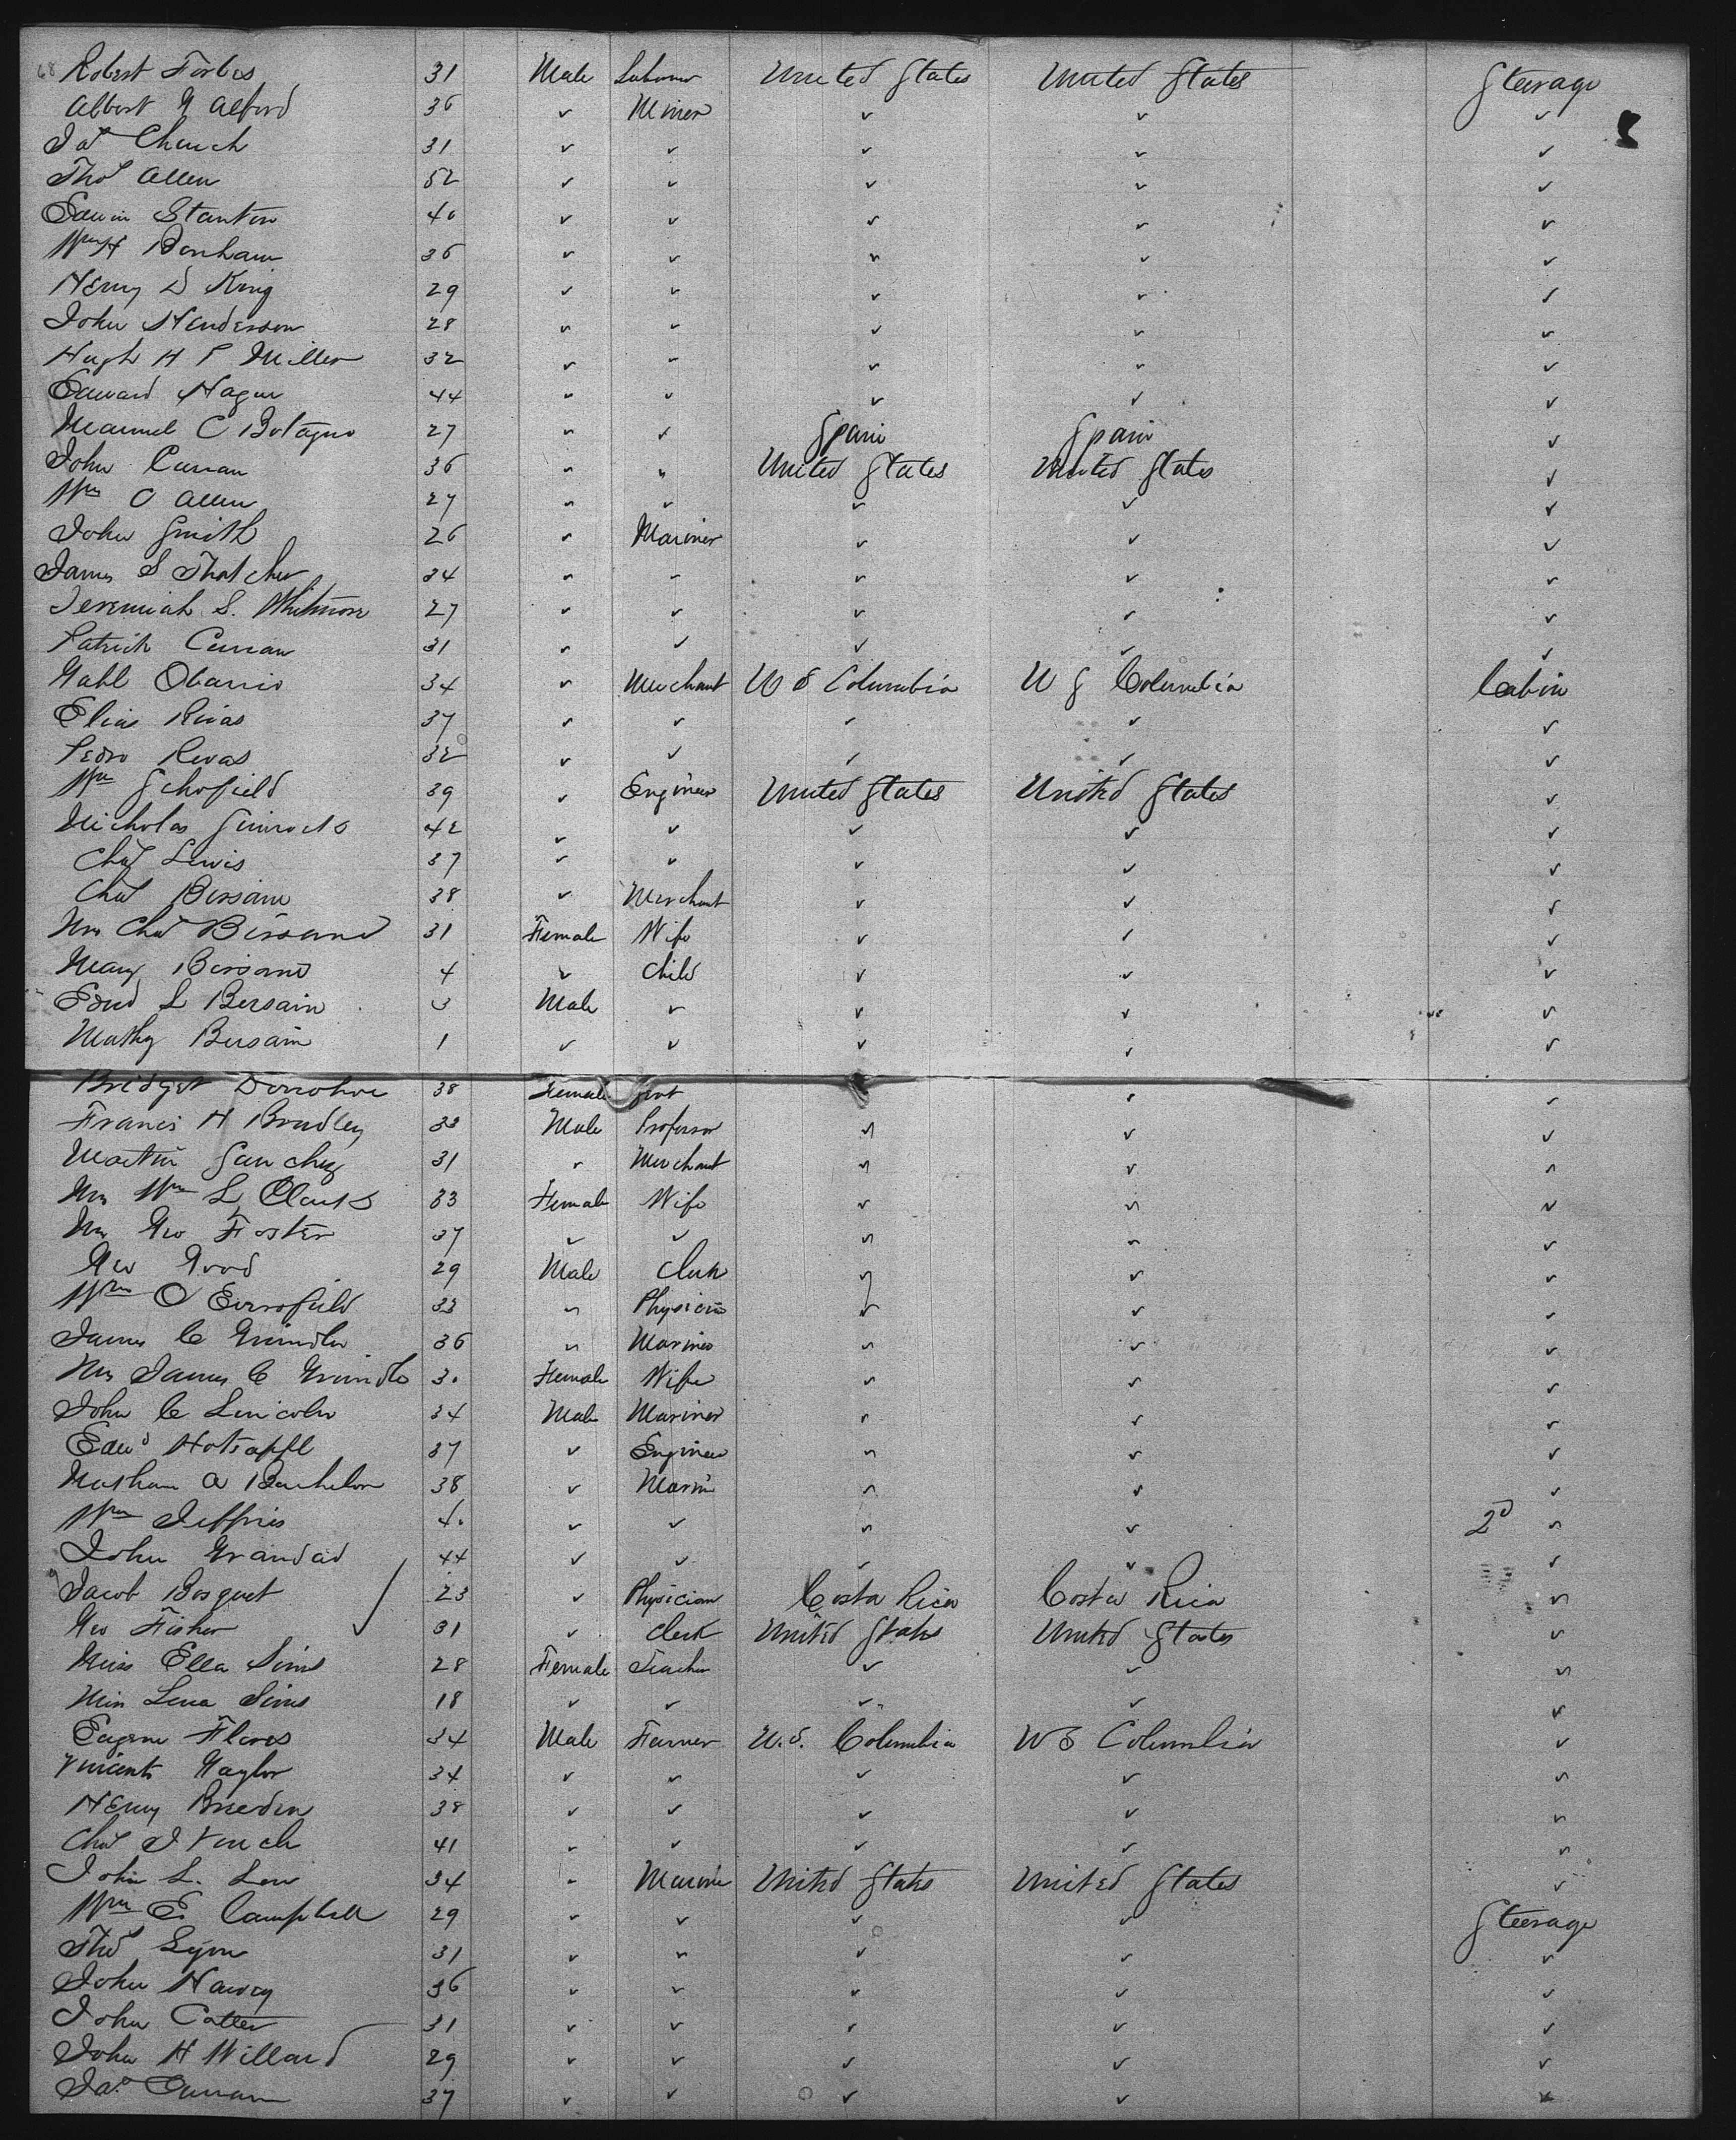 68 Robert Forbes 31 Male Laborer United States United States Steerage
Albert G Alford 36 ✓ Miner ✓ ✓ ✓
Jas Church 31 ✓ ✓ ✓ ✓ ✓
Thos Allen 52 ✓ ✓ ✓ ✓ ✓
Edwin Stanton 40 ✓ ✓ ✓ ✓ ✓
Wm H Bonham 36 ✓ ✓ ✓ ✓ ✓
Henry D King 29 ✓ ✓ ✓ ✓ ✓
John Henderson 28 ✓ ✓ ✓ ✓ ✓
Hugh H P Miller 32 ✓ ✓ ✓ ✓ ✓
Edward Hagar 44 ✓ ✓ ✓ ✓ ✓
Manuel C 27 ✓ ✓ Spain Spain ✓
John Curran 36 ✓ ✓ United States United States ✓
Wm O Allen 27 ✓ ✓ ✓ ✓ ✓
John Smith 26 ✓ Mariner ✓ ✓ ✓
James S Thatcher 34 ✓ ✓ ✓ ✓ ✓
Jeremiah S. Whitmore 27 ✓ ✓ ✓ ✓ ✓
Patrick Curran 31 ✓ ✓ ✓ ✓ ✓
Gabl Obarrio 34 ✓ Merchant U S Columbia U S Columbia Cabin
Elias Rivas 37 ✓ ✓ ✓ ✓ ✓
Pedro Rivas 32 ✓ ✓ ✓ ✓ ✓
Wm Schofield 39 ✓ Engineer United States United States ✓
Nicholas 42 ✓ ✓ ✓ ✓ ✓
Chas Lewis 37 ✓ ✓ ✓ ✓ ✓
Chas 38 ✓ Merchant ✓ ✓ ✓
Mrs Chas 31 Female Wife ✓ ✓ ✓
Mary 4 ✓ Child ✓ ✓ ✓
L Bersain 3 Male ✓ ✓ ✓ ✓
Bersain 1 ✓ ✓ ✓ ✓ ✓
Bridget Donohoe 38 Female Svt ✓ ✓
Francis H Bradley 33 Male Professor ✓ ✓ ✓
Martin Sanchez 31 ✓ Merchant ✓ ✓ ✓
Mrs Wm L Clarks 33 Female Wife ✓ ✓ ✓
Mrs Geo Foster 37 ✓ ✓ ✓ ✓ ✓
Geo Good 29 Male Clerk ✓ ✓ ✓
Wm O 33 ✓ Physician ✓ ✓ ✓
James C Grindle 36 ✓ Mariner ✓ ✓ ✓
Mrs James C Grindle 30 Female Wife ✓ ✓ ✓
John C Lincoln 34 Male Mariner ✓ ✓ ✓
Edwd Hotsapfl 37 ✓ Engineer ✓ ✓ ✓
Nathan A Bachelor 38 ✓ Marin ✓ ✓ ✓
Wm Jeffries 40 ✓ ✓ ✓ ✓ 2d ✓
John Grandad 44 ✓ ✓ ✓ ✓ ✓
Jacob Bosquet 23 ✓ Physician Costa Rica Costa Rica ✓
Geo Fisher 31 ✓ Clerk United States United States ✓
Miss Ella Sims 28 Female Teacher ✓ ✓ ✓
Miss Lena Sims 18 ✓ ✓ ✓ ✓ ✓
Eugene Flores 34 Male Farmer U.S. Columbia U S Columbia ✓
Vincents Naylor 34 ✓ ✓ ✓ ✓ ✓
Henry Breeden 38 ✓ ✓ ✓ ✓ ✓
Chas J 41 ✓ ✓ ✓ ✓ ✓
John L. Low 34 ✓ Marine United States United States ✓
Wm E Campbell 29 ✓ ✓ ✓ ✓ Steerage
Thos Lyon 31 ✓ ✓ ✓ ✓ ✓
John Harvey 36 ✓ ✓ ✓ ✓ ✓
John Cotter 31 ✓ ✓ ✓ ✓ ✓
John H Willard 29 ✓ ✓ ✓ ✓ ✓
Jas Curran 37 ✓ ✓ ✓ ✓ ✓